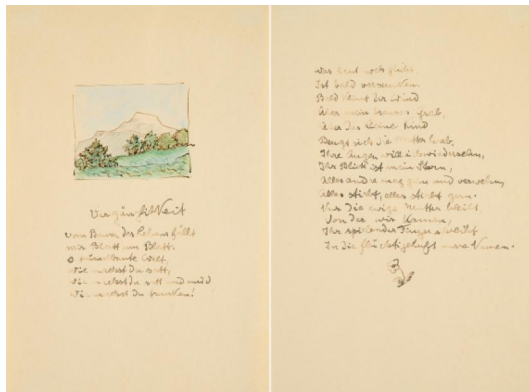 Vergänglichkeit
Vom Baum des Lebens fällt
mir Blatt um Blatt.
O taumelbunte Welt,
wie machst du satt,
wie machst du satt und müd
wie machst du trunken!
Was heut noch glüht
Ist bald versunken.
Bald klirrt der Wind
Über mein braunes Grab,
Über das kleine Kind
Beugt sich die Mutter herab.
Ihre Augen will ich wiedersehn,
Ihr Blick ist mein Stern,
Alles andre mag gehn und verwehn,
Alles stirbt, alles stirbt gern.
Nur die ewige Mutter bleibt,
Von der wir kamen,
Ihr spielender Finger schreibt
In die flüchtige Luft unsre Namen.